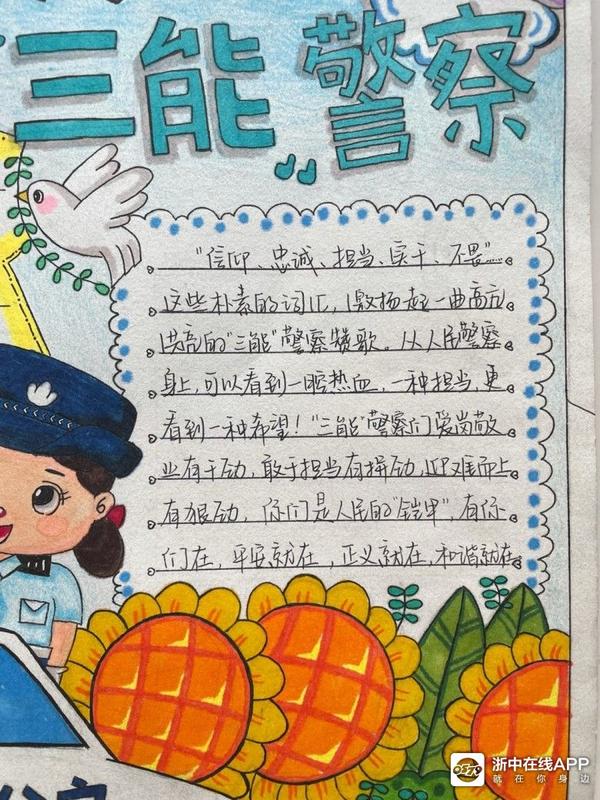 三能警察
"信仰、忠诚、担当、实干、不畏"……
这些朴素的词汇,激扬起一曲高亢
洪亮的"三能"警察赞歌。从人民警察
身上,可以看到一腔热血,一种担当,更
看到一种希望!"三能"警察们爱岗敬
业有干劲,敢于担当有拼劲,迎难而上
有狠劲,你们是人民的"铠甲",有你
们在,平安就在,正义就在,和谐就在
浙中在线APP
就在你身边